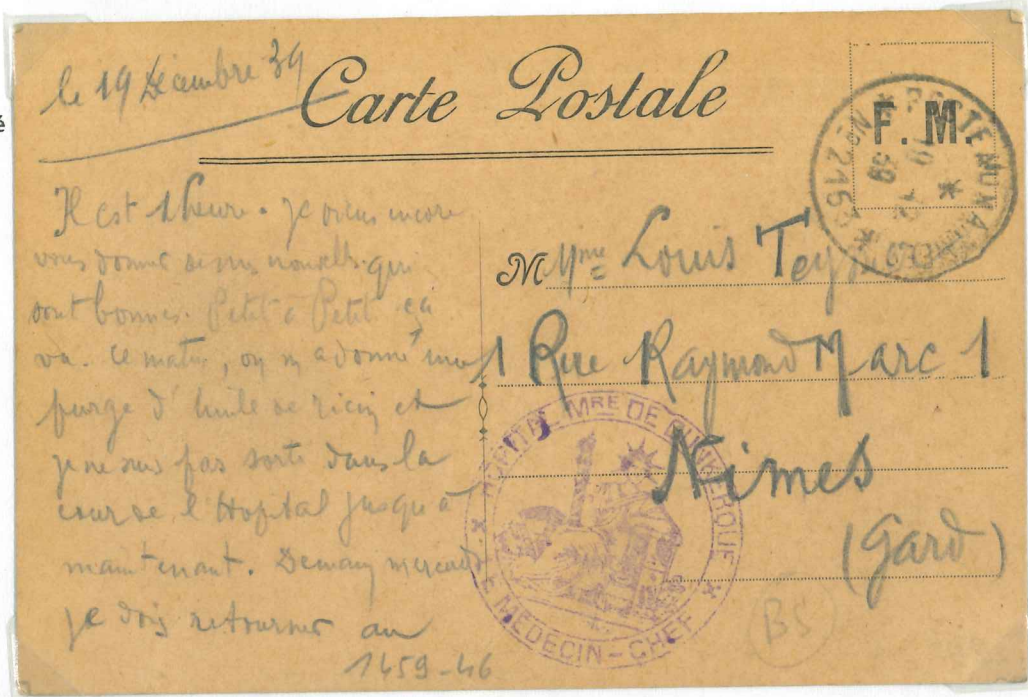 le 19 Décembre 39
Carte Postale
F. M.
POSTE NUMÉROTÉE
19 12 39
No 216
Il est 1 heure. Je viens encore
vous donner de mes nouvelles qui
sont bonnes. Petit à Petit ça
va. Ce matin, on m'a donné une
purge d'huile de ricin et
je ne suis pas sorti dans la
cour de l'Hopital jusqu'à
maintenant. Demain mercredi
je dois retourner au
M Mme Louis
1 Rue Raymond Marc 1
Nimes
(Gard)
HOPITAL MRE DE DUNKERQUE
MEDECIN-CHEF
BS
1459-46